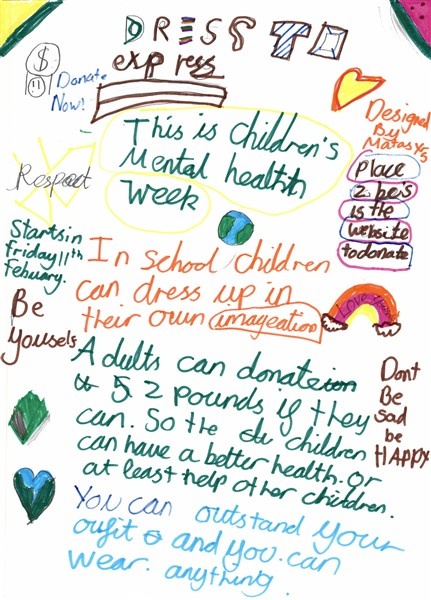 DRESS TO
express
$
Donate
Now!
This is children's
Mental healthth
Week
Designed
By
Matas Y5
Place
2 be's
is the
website
to donate
Respect
Starts in
friday 11th
Febuary.
In school children
can dress up in
their own imageation
Love Yourself
Be
Yousels
Adults can donate
5 2 pounds if they
can. So the children
can have a better health. Or
at least help other children.
Dont
Be
Sad
be
HAPPY
You can outstand your
oufit and you can
wear. anything.